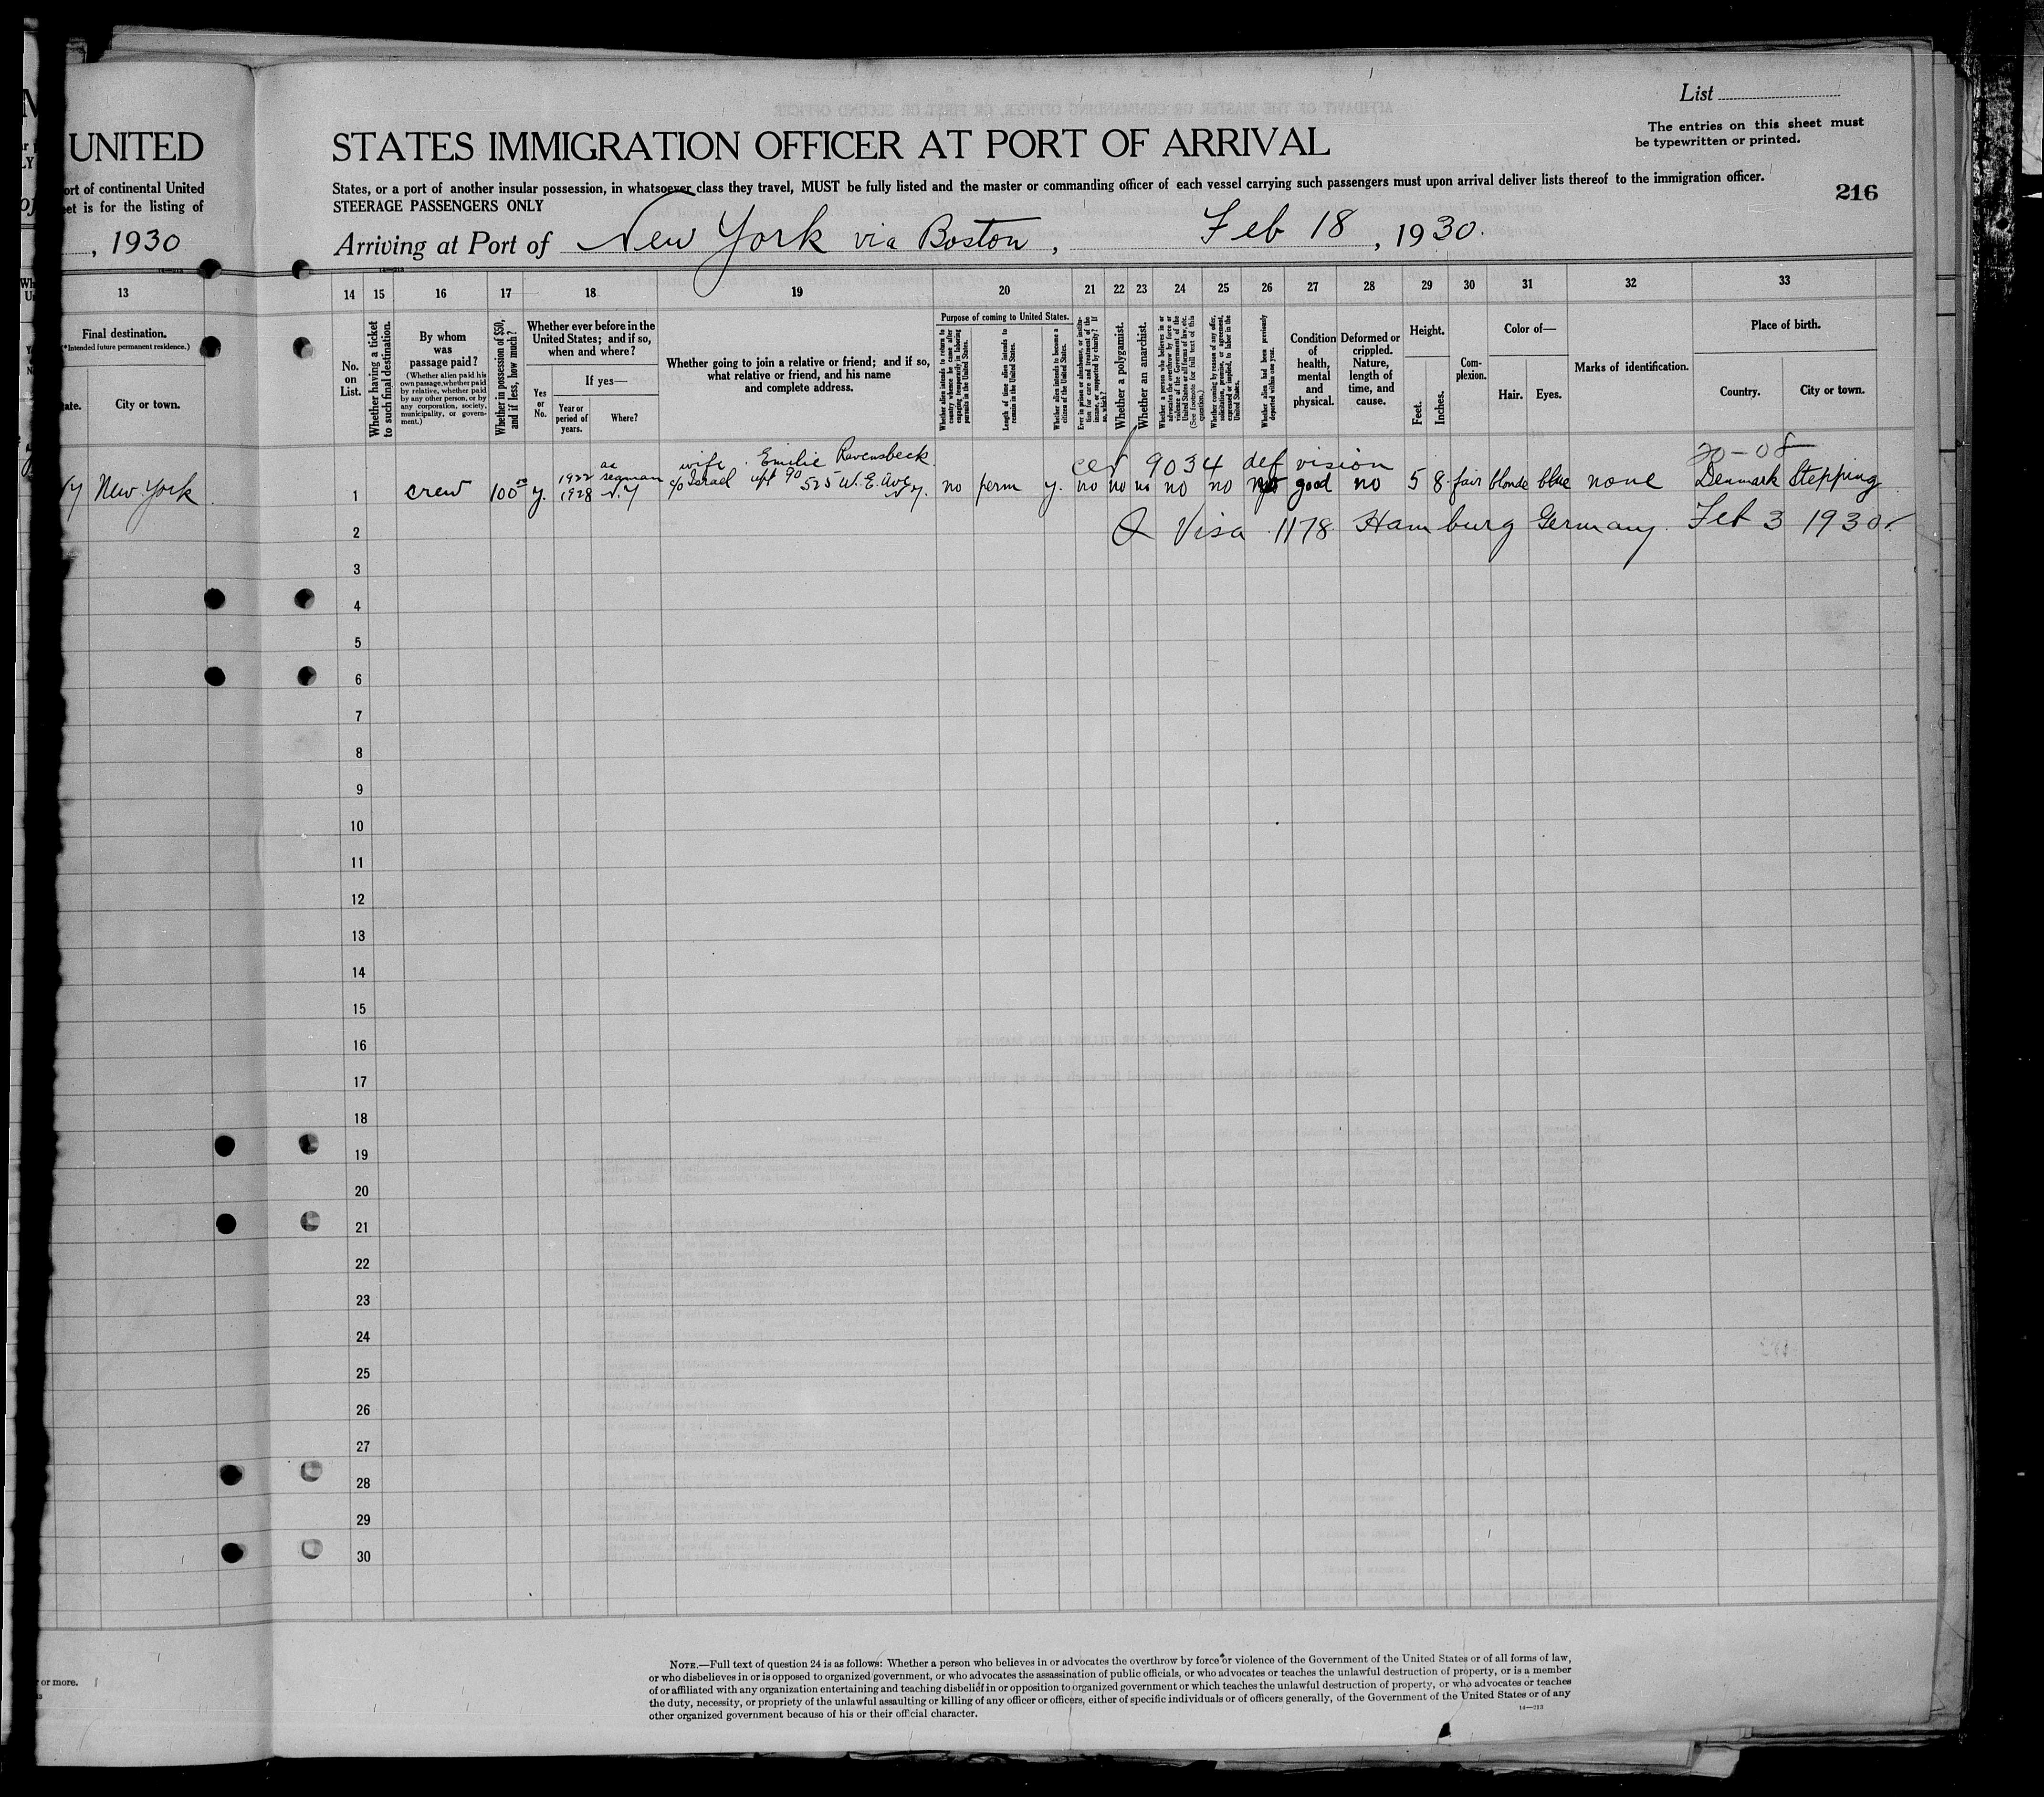 List
The entries on this sheet must
be typewritten or printed.
UNITED
STATES IMMIGRATION OFFICER AT PORT OF ARRIVAL
ort of continental United
States, or a port of another insular possession, in whatsoever class they travel, MUST be fully listed and the master or commanding officer of each vessel carrying such passengers must upon arrival deliver lists thereof to the immigration officer.
eet is for the listing of
STEERAGE PASSENGERS ONLY
216
, 1930
Arriving at Port of New York via Boston, Feb 18, 1930.
13
14 15 16 17 18 19 20 21 22 23 24 25 26 27 28 29 30 31 32 33
Final destination.
(*Intended future permanent residence.)
ate.
City or town.
No. on List.
Whether having a ticket to such final destination.
By whom was passage paid?
(Whether alien paid his own passage, whether paid by relative, whether paid by any other person, or by any corporation, society, municipality, or government.)
Whether in possession of $50, and if less, how much?
Whether ever before in the United States; and if so, when and where?
Yes or No.
If yes—
Year or period of years.
Where?
Whether going to join a relative or friend; and if so, what relative or friend, and his name and complete address.
Purpose of coming to United States.
Whether alien intends to return to country whence he came after engaging temporarily in laboring pursuits in the United States.
Length of time alien intends to remain in the United States.
Whether alien intends to become a citizen of the United States.
Ever in prison or almshouse, or institution for care and treatment of the insane, or supported by charity? If so, which?
Whether a polygamist.
Whether an anarchist.
Whether a person who believes in or advocates the overthrow by force or violence of the Government of the United States or all forms of law, etc. (See footnote for full text of this question.)
Whether coming by reason of any offer, solicitation, promise, or agreement, expressed or implied, to labor in the United States.
Whether alien had been previously deported within one year.
Condition of health, mental and physical.
Deformed or crippled. Nature, length of time, and cause.
Height.
Feet.
Inches.
Complexion.
Color of—
Hair.
Eyes.
Marks of identification.
Place of birth.
Country.
City or town.
wife Emilie Ravensbeck cer 9034 def vision 20-08
NY New York 1 crew 100 y. 1922 1928 as seaman N.Y c/o Israel apt 90 525 W. E. Ave N.Y. no perm y. no no no no no good no 5 8 fair blonde blue none Denmark Stepping
2 Q Visa 1178 Hamburg Germany Feb 3 1930
3
4
5
6
7
8
9
10
11
12
13
14
15
16
17
18
19
20
21
22
23
24
25
26
27
28
29
30
or more.
NOTE.—Full text of question 24 is as follows: Whether a person who believes in or advocates the overthrow by force or violence of the Government of the United States or of all forms of law,
or who disbelieves in or is opposed to organized government, or who advocates the assassination of public officials, or who advocates or teaches the unlawful destruction of property, or is a member
of or affiliated with any organization entertaining and teaching disbelief in or opposition to organized government or which teaches the unlawful destruction of property, or who advocates or teaches
the duty, necessity, or propriety of the unlawful assaulting or killing of any officer or officers, either of specific individuals or of officers generally, of the Government of the United States or of any
other organized government because of his or their official character.
14—213